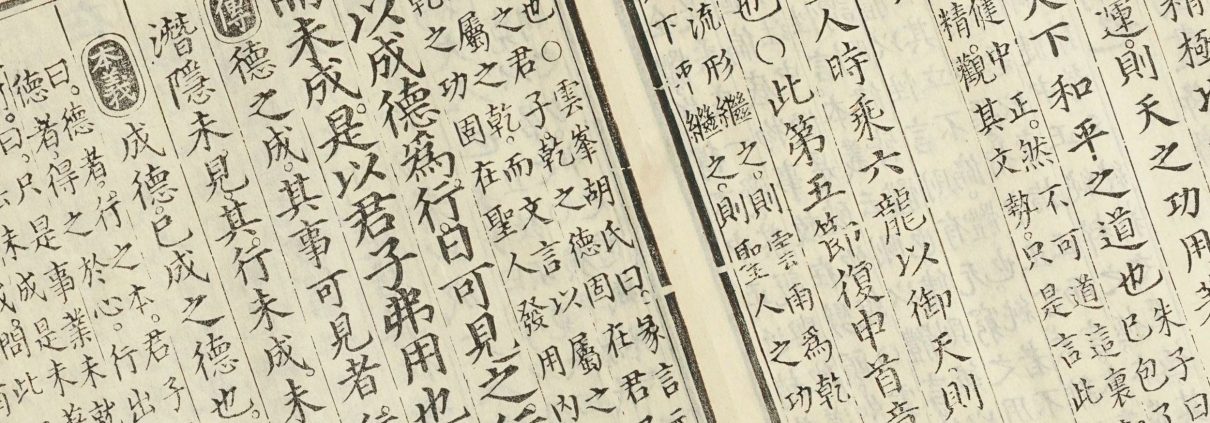 精極
運。則天之功用
天下和平之道也
朱子曰
已包
健中正。然不可道這裏
精。觀其文勢。只是言此
人時乘六龍以御天。則
也○此第五節復申首章
流形繼之。則雲雨爲乾
下平繼之。則聖人之功
也○雲峯胡氏曰。彖言
之君子乾之德固在君
屬之乾。而文言以屬之
乾之功固在聖人發用内
以成德爲行。日可見之行
而未成。是以君子弗用也
傳
德之成。其事可見者。行
潛隱未見。其行未成。未
本義
成德。已成之德也。
曰。德者。行之本。君子
德者得之於心。行出
曰。只是事業未就
未成是未
問此